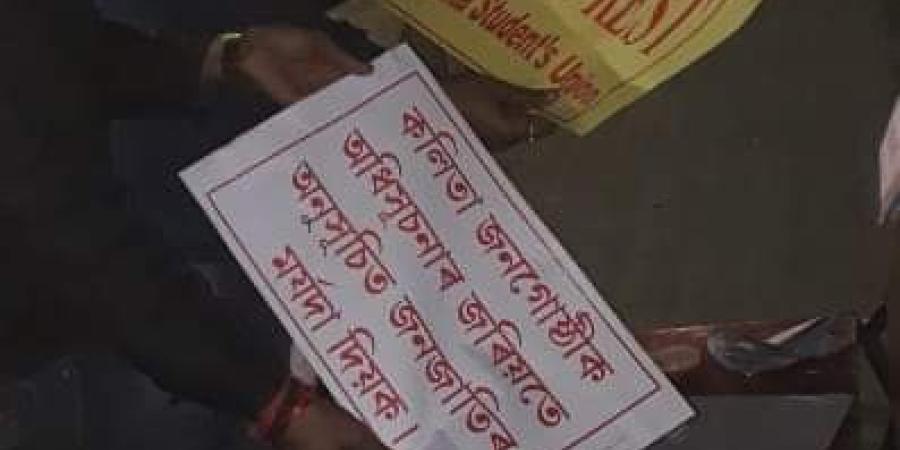 REST
Student's Union
কলিতা জনগোষ্ঠীক
অধিসূচনাৰ জৰিয়তে
অনুসূচিত জনজাতিৰ
মৰ্যদা দিয়ক।